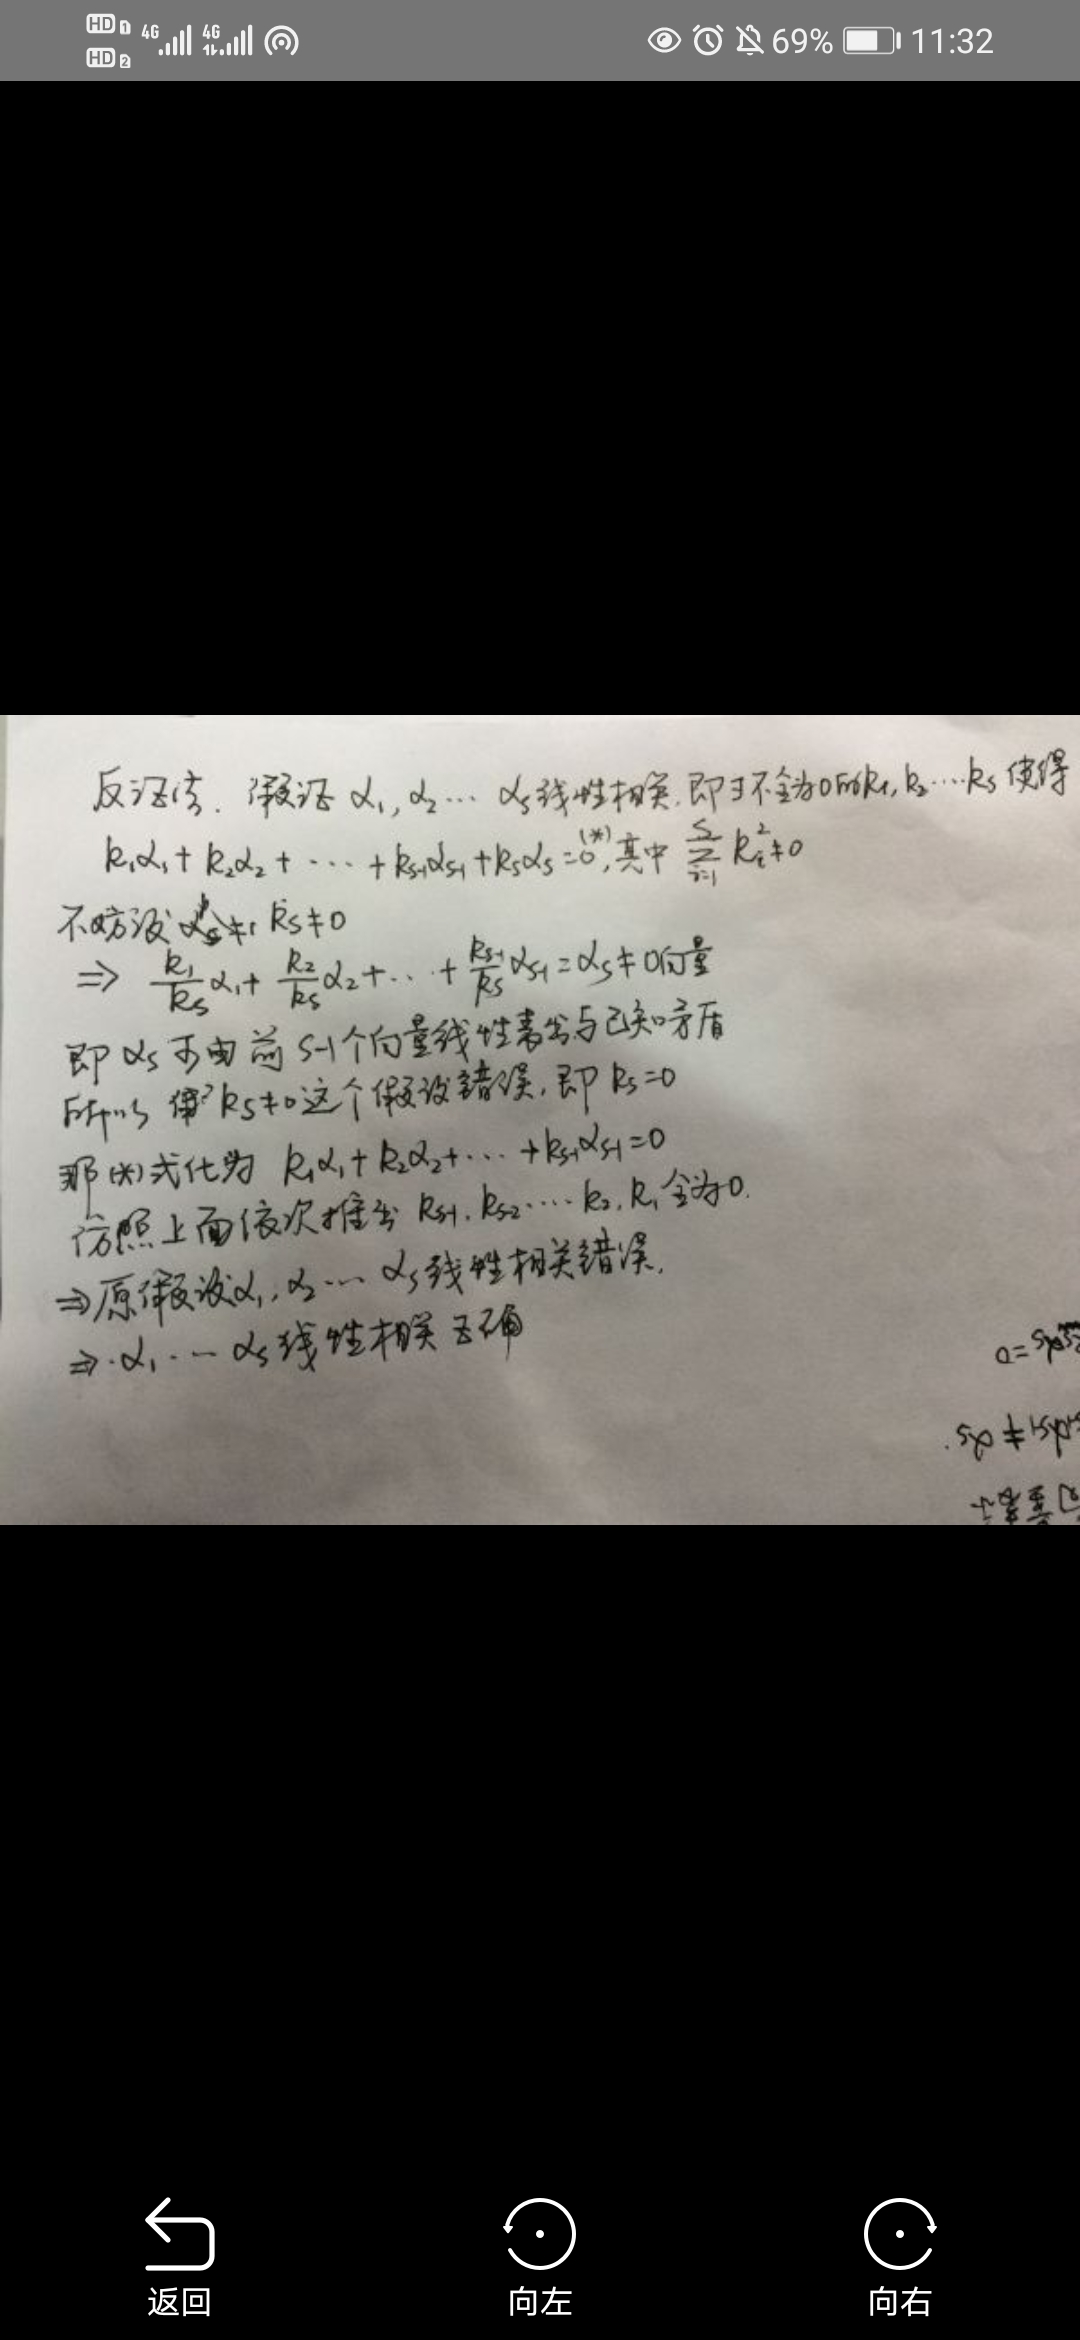 HD 1 4G 4G 69% 11:32
HD 2
反证法. 假设 α₁, α₂ … αs 线性相关. 即∃不全为0的k₁, k₂ … ks 使得
k₁α₁ + k₂α₂ + … + ks-1αs-1 + ksαs = 0 (*), 其中 Σ(i=1..s) ki² ≠ 0
不妨设 ks ≠ 0
⇒ k₁/ks α₁ + k₂/ks α₂ + … + ks-1/ks αs-1 = αs ≠ 0向量
即 αs 可由前 s-1个向量线性表出与已知矛盾
所以 ks ≠ 0 这个假设错误. 即 ks = 0
那(*)式化为 k₁α₁ + k₂α₂ + … + ks-1αs-1 = 0
仿照上面依次推出 ks-1. ks-2 … k₂, k₁ 全为0.
⇒原假设α₁, α₂ … αs线性相关错误.
⇒ α₁ … αs 线性相关正确
返回 向左 向右